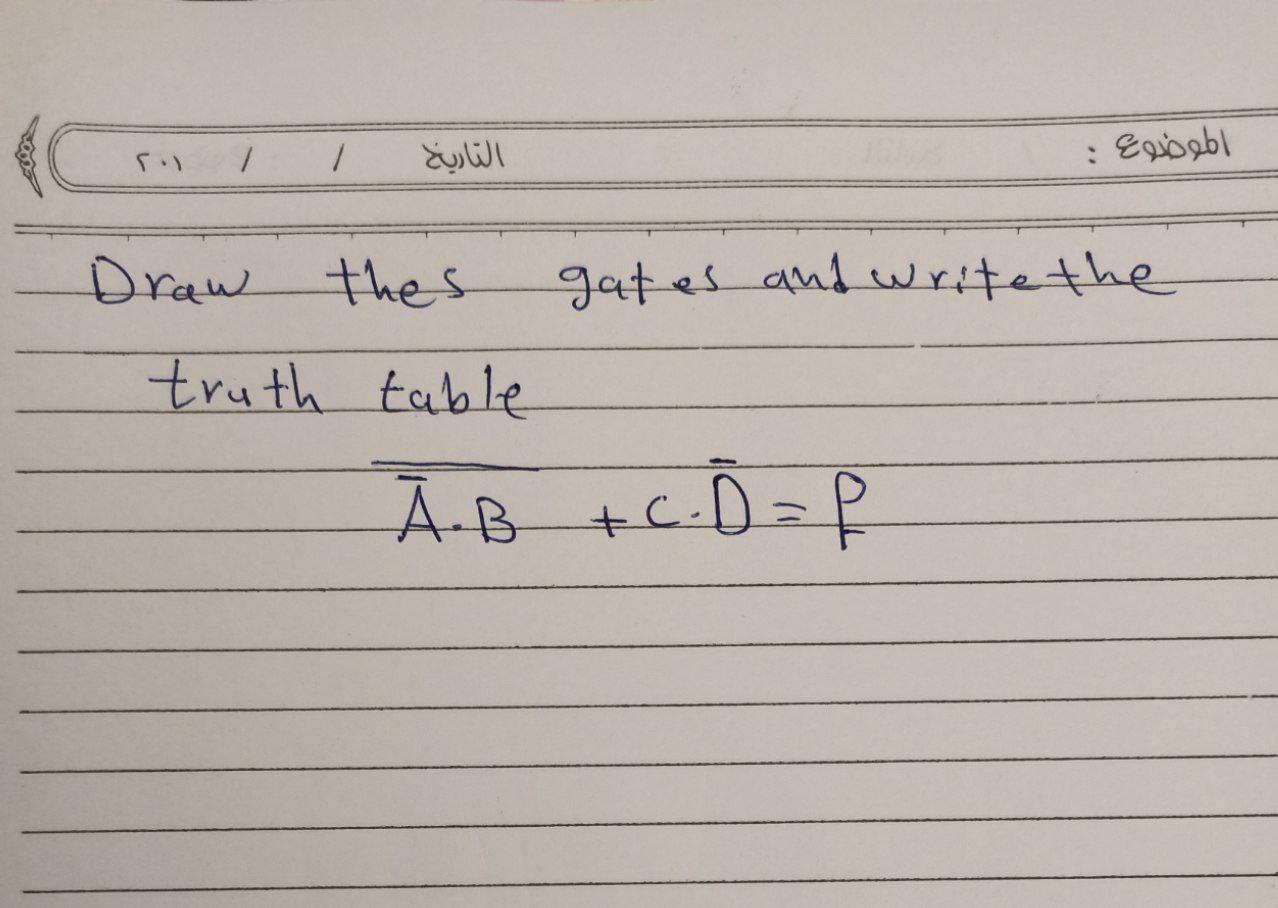 الموضوع : التاريخ / / ٢٠١
Draw thes gates and write the
truth table
$\overline{\bar{A}.B} + C.\bar{D} = F$